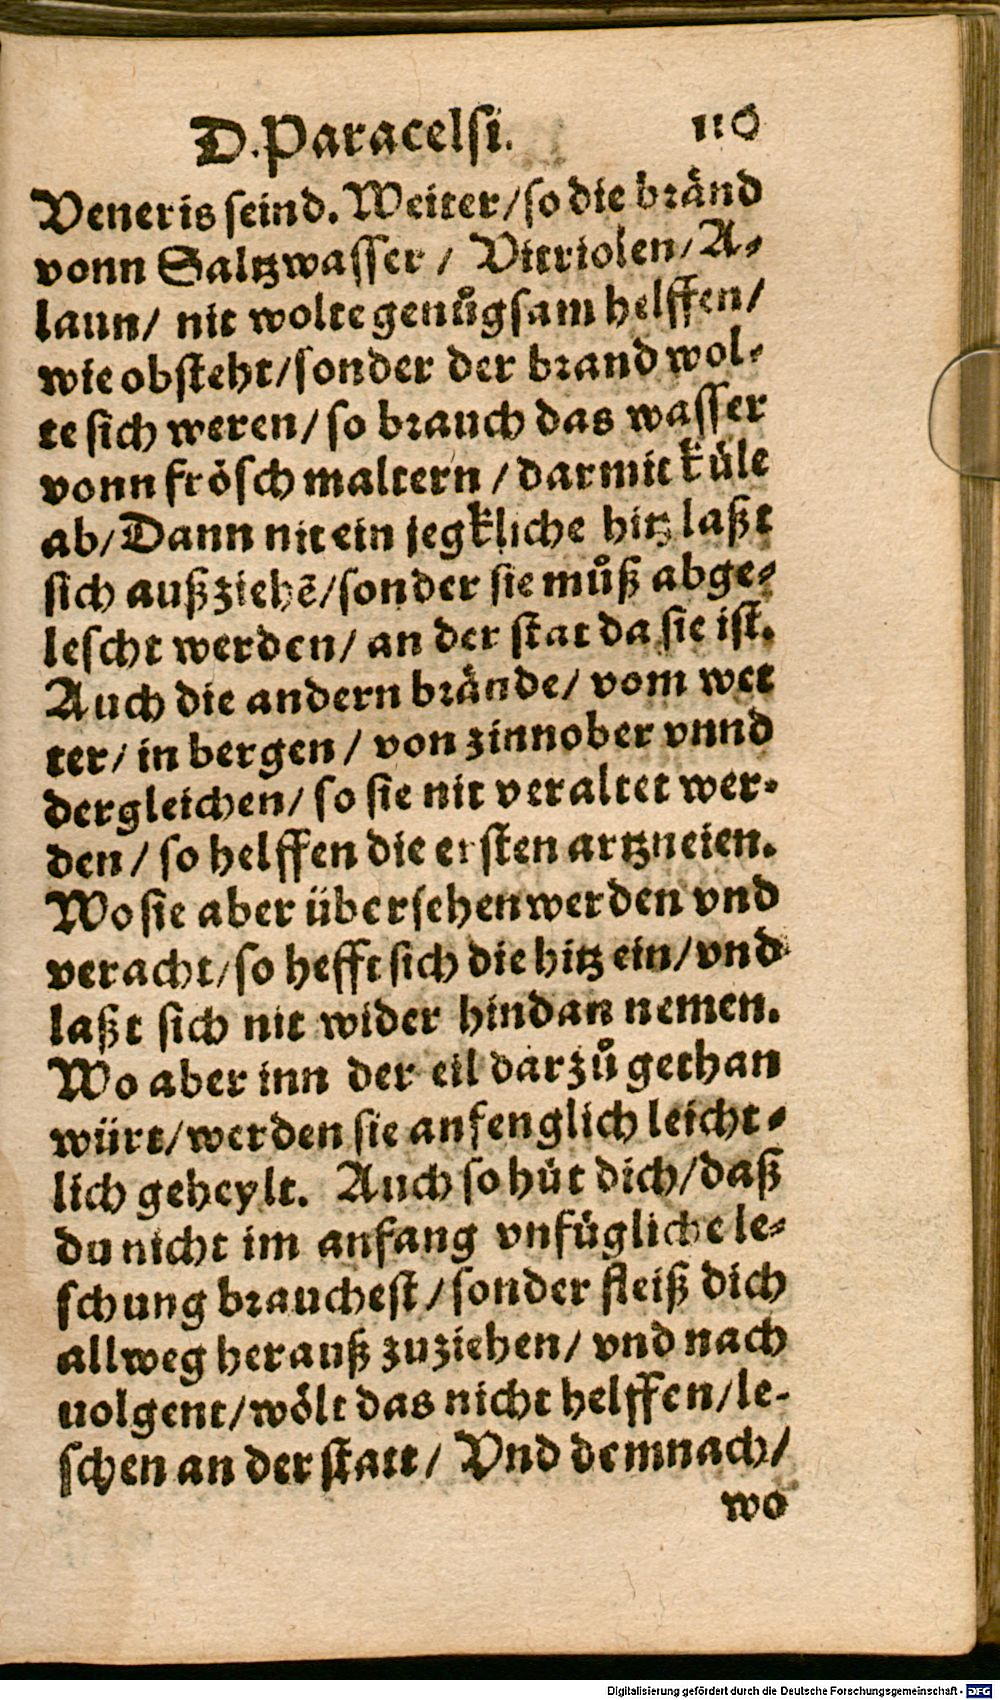 D. Paracelsi. 116
Veneris seind. Weiter / so die bränd
vonn Saltzwasser / Vitriolen / A⸗
laun / nit wolte genůgsam helffen /
wie obsteht / sonder der brand wol⸗
te sich weren / so brauch das wasser
vonn frösch maltern / darmit küle
ab / Dann nit ein jegkliche hitz laßt
sich außziehē / sonder sie můß abge⸗
lescht werden / an der stat da sie ist.
Auch die andern brände / vom wet
ter / in bergen / von zinnober vnnd
dergleichen / so sie nit veraltet wer⸗
den / so helffen die ersten artzneien.
Wo sie aber übersehen werden vnd
veracht / so hefft sich die hitz ein / vnd
laßt sich nit wider hindan nemen.
Wo aber inn der eil darzů gethan
würt / werden sie anfenglich leicht⸗
lich geheylt. Auch so hüt dich / daß
du nicht im anfang vnfügliche le⸗
schung brauchest / sonder fleiß dich
allweg herauß zuziehen / vnd nach
uolgent / wölt das nicht helffen / le⸗
schen an der statt / Vnd demnach /
wo
Digitalisierung gefördert durch die Deutsche Forschungsgemeinschaft - DFG